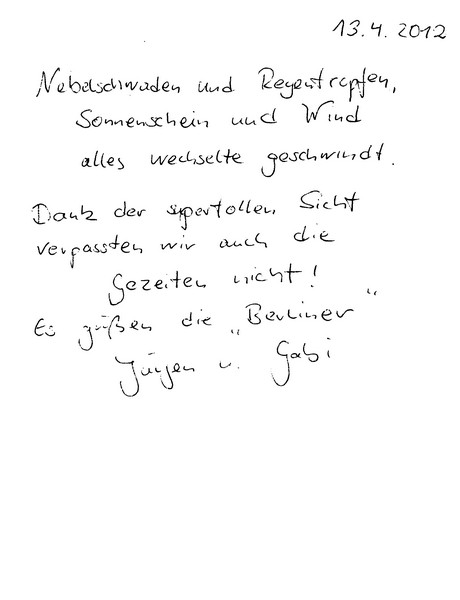 13.4.2012
Nebelschwaden und Regentropfen,
Sonnenschein und Wind
alles wechselte geschwindt.
Dank der supertollen Sicht
verpassten wir auch die
Gezeiten nicht!
Es grüßen die „Berliner“
Jürgen u. Gabi